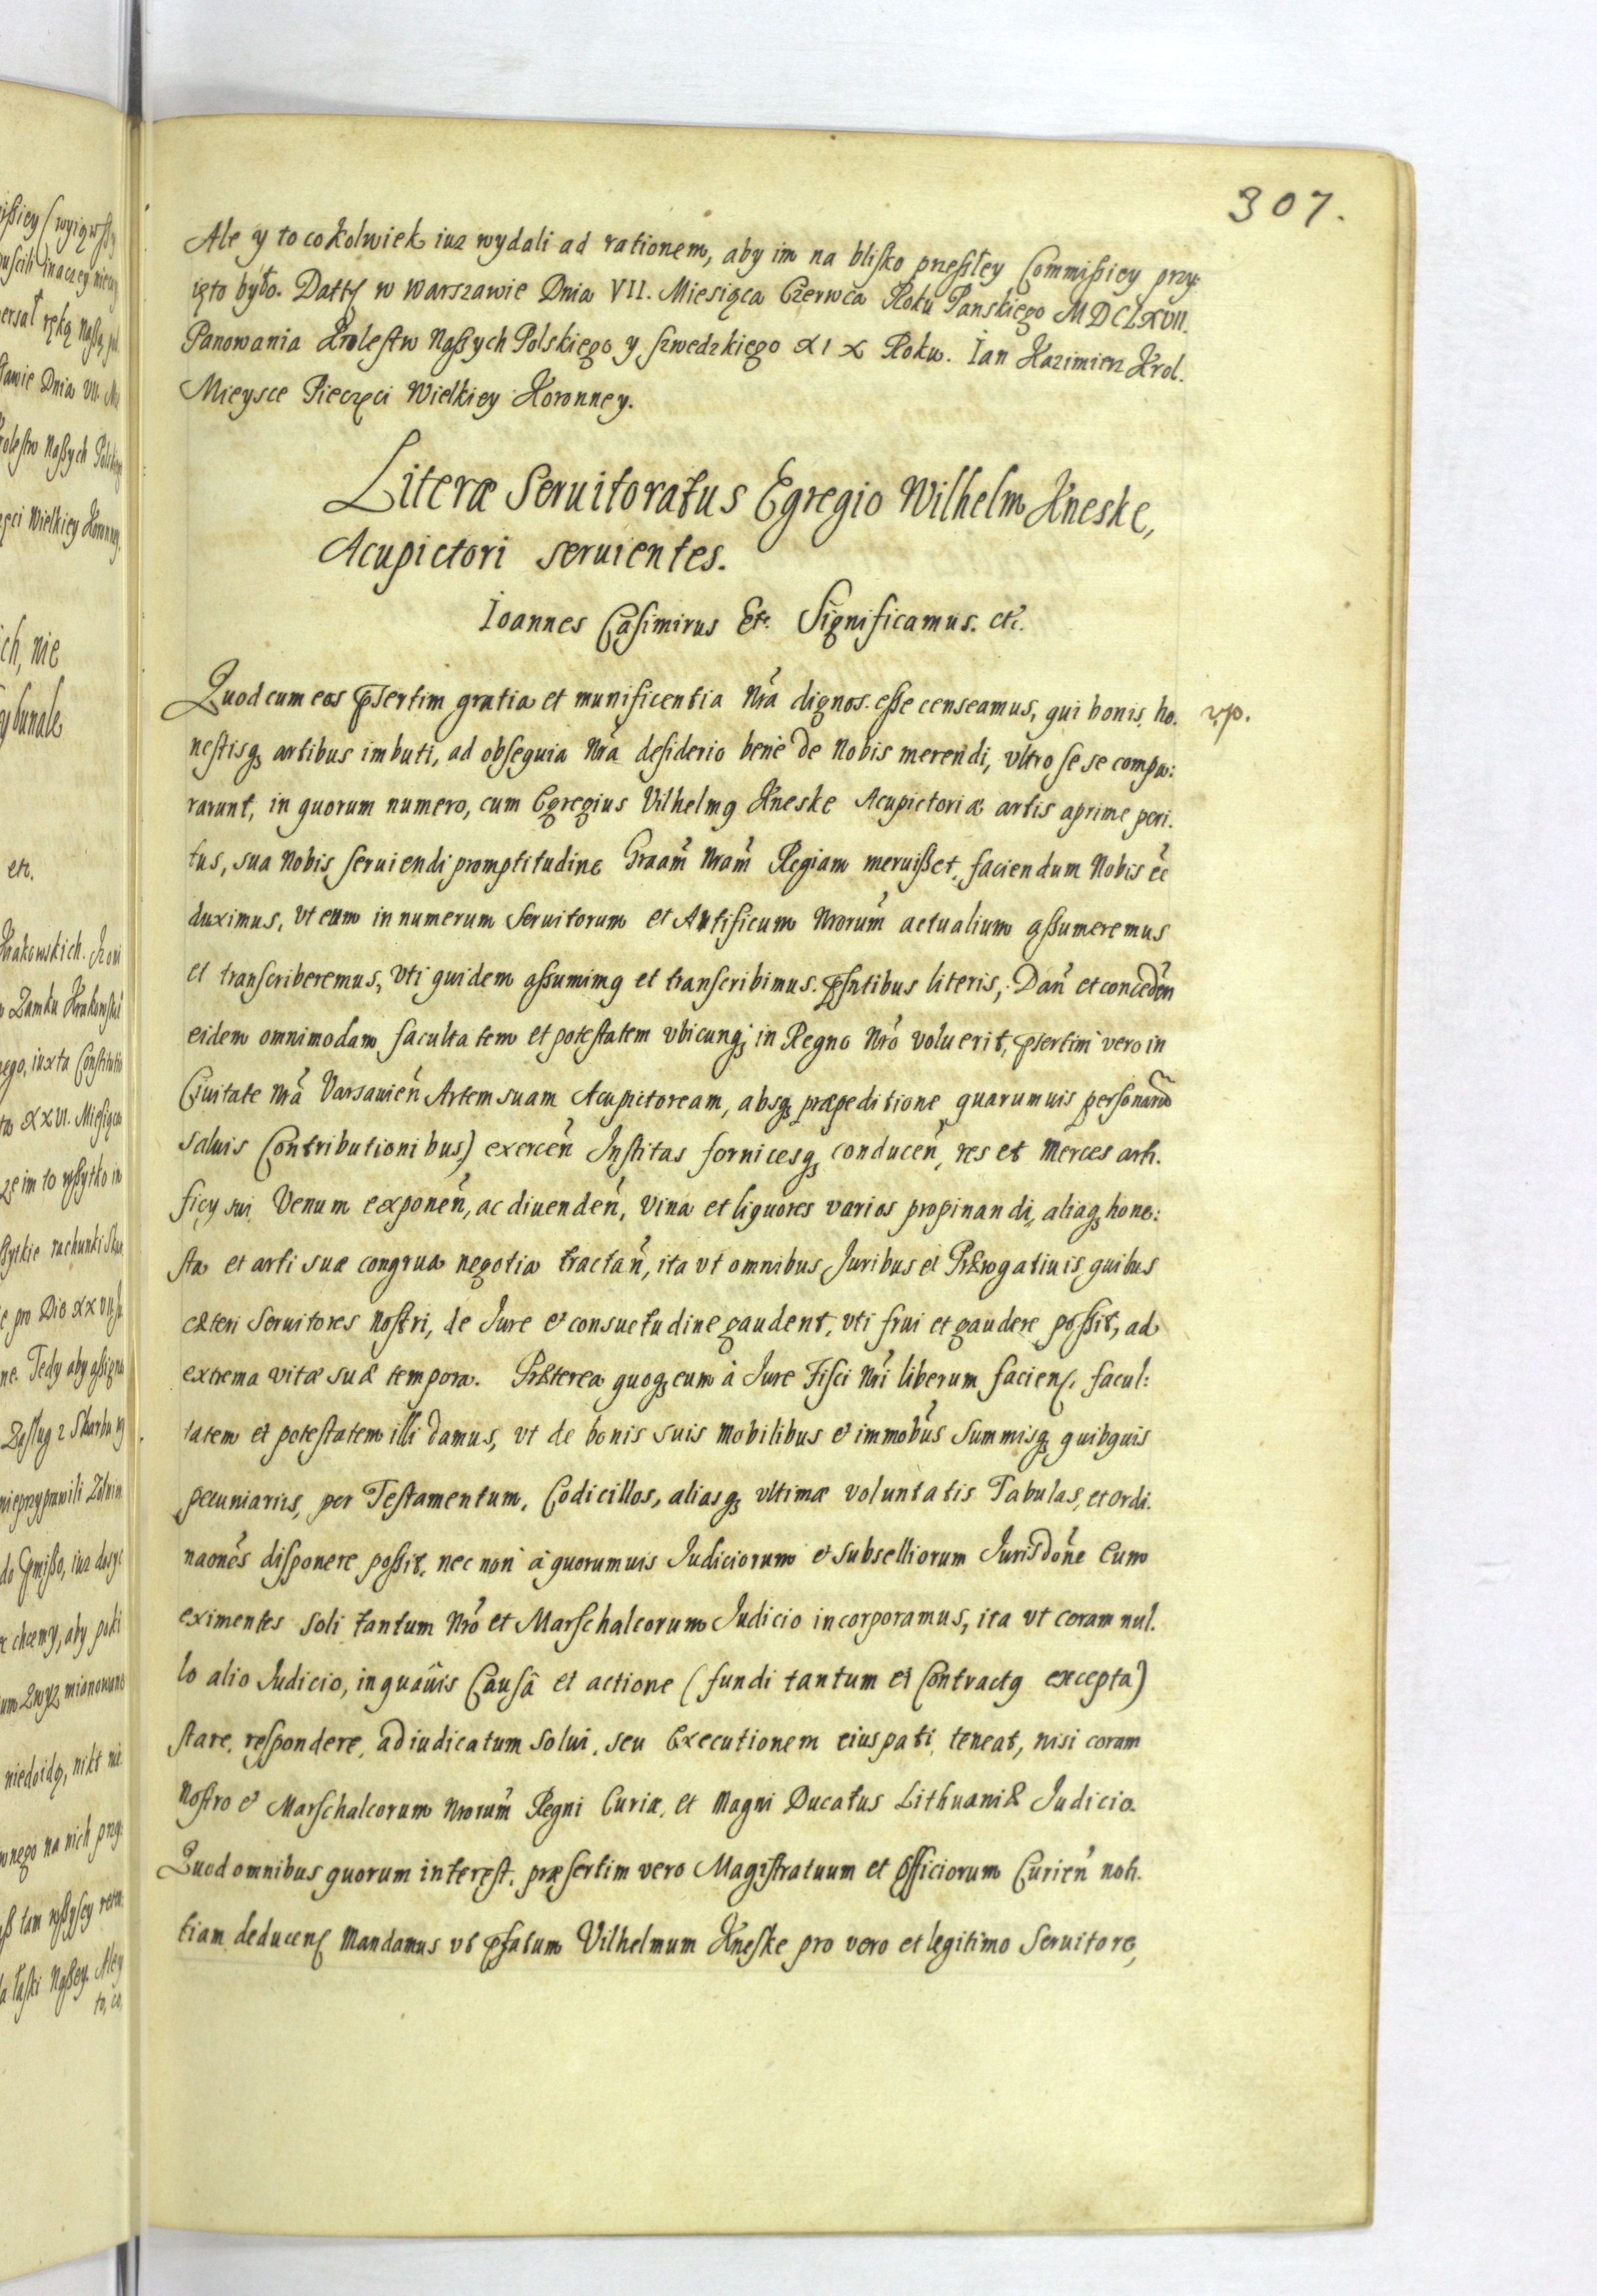 307.
Ale y to cokolwiek iuz wydali ad rationem, aby im na blisko przeszłey Commissiey przy:
ięto było. Datt w Warszawie Dnia VII. Miesiąca Czerwca Roku Panskiego MDCLXVII.
Panowania Krolestw Naszych Polskiego y Szwedzkiego XIX Roku. Ian Kazimierz Krol.
Mieysce Pieczęci Wielkiey Koronney.
Literæ Seruitoratus Egregio Wilhelm Kneske,
Acupictori seruientes.
Ioannes Casimirus Etc. Significamus. etc.
Quod cum eos pſertim gratia et munificentia Nra dignos esse censeamus, qui bonis, ho.
nestisq artibus imbuti, ad obsequia Nra desiderio bene de Nobis merendi, vltro sese compa:
rarunt, in quorum numero, cum Egregius Vilhelmq Kneske Acupictoriæ artis aprime peri.
tus, sua Nobis seruiendi promptitudine Graam Nram Regiam meruisset, faciendum Nobis ee
duximus, vt eum in numerum Seruitorum et Artificum Nrorum actualium assumeremus
et transcriberemus, vti quidem assumimq et transcribimus. pſntibus literis, Dan et conceden
eidem omnimodam facultatem et potestatem vbicunq in Regno Nro voluerit, pſertim vero in
Ciuitate Nra Varsauien Artem suam Acupictoream, absq præpeditione quarumuis personarum
saluis Contributionibus) exercen Institas fornicesq conducen, res et Merces arti.
ficy sui Venum exponen, ac diuenden, Vina et liquores varios propinandi, aliaq hone:
sta et arti suæ congrua negotia tractan, ita vt omnibus Juribus et Prærogatiuis, quibus
cæteri Seruitores Nostri, de Jure et consuetudine gaudent, vti frui et gaudere possit, ad
extrema vitæ suæ tempora. Præterea quoq eum à Jure Fisci Nri liberum faciens, facul:
tatem et potestatem illi damus, vt de bonis suis Mobilibus et immobus Summisq quibquis
pecuniariis, per Testamentum, Codicillos, aliasq vltimæ voluntatis Tabulas, et ordi.
naones disponere possit, nec non à quorumuis Judiciorum et subselliorum Jurisdone Eum
eximentes soli tantum Nro et Marschalcorum Judicio incorporamus, ita vt coram nul.
lo alio Judicio, in quauis Causâ et actione (fundi tantum et Contractq excepta)
stare, respondere, adiudicatum solui, seu Executionem eius pati, teneat, nisi coram
Nostro et Marschalcorum Nrorum Regni Curiæ, et Magni Ducatus Lithuaniæ Judicio.
Quod omnibus quorum interest, præsertim vero Magistratuum et Officiorum Curien noti.
tiam deducens Mandamus vt pfatum Vilhelmum Kneske pro vero et legitimo Seruitore,